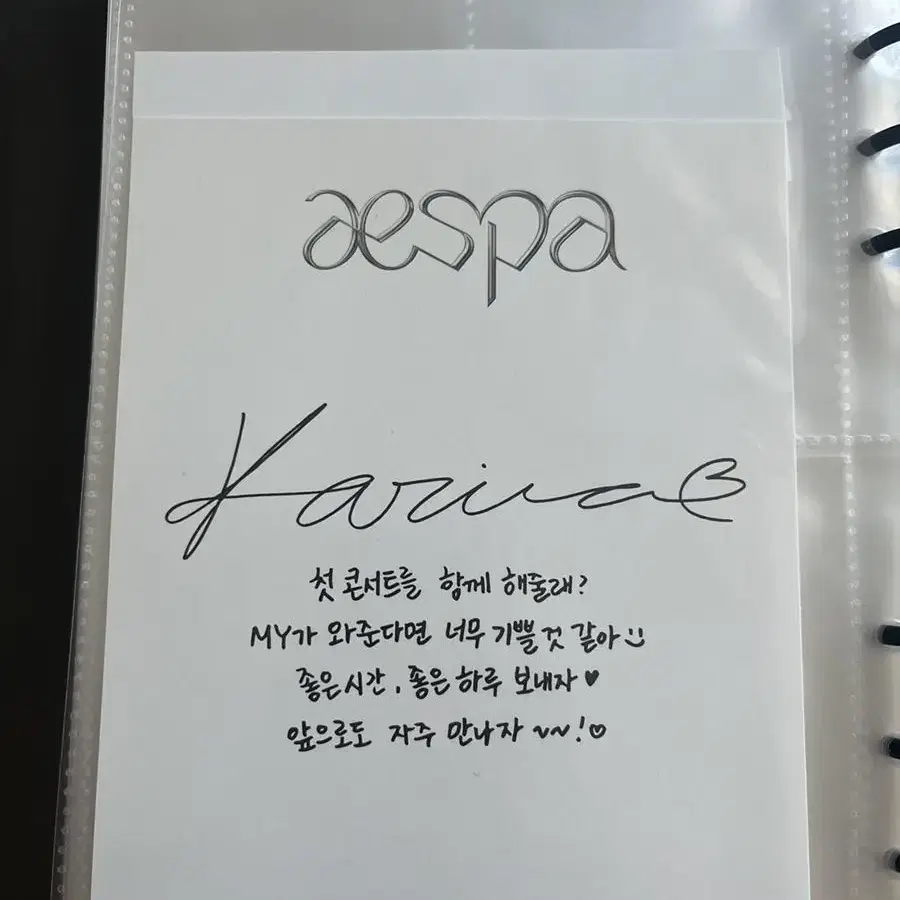 aespa
Karina
첫 콘서트를 함께 해줄래?
MY가 와준다면 너무 기쁠 것 같아
좋은 시간, 좋은 하루 보내자♥
앞으로도 자주 만나자 ~~!♡